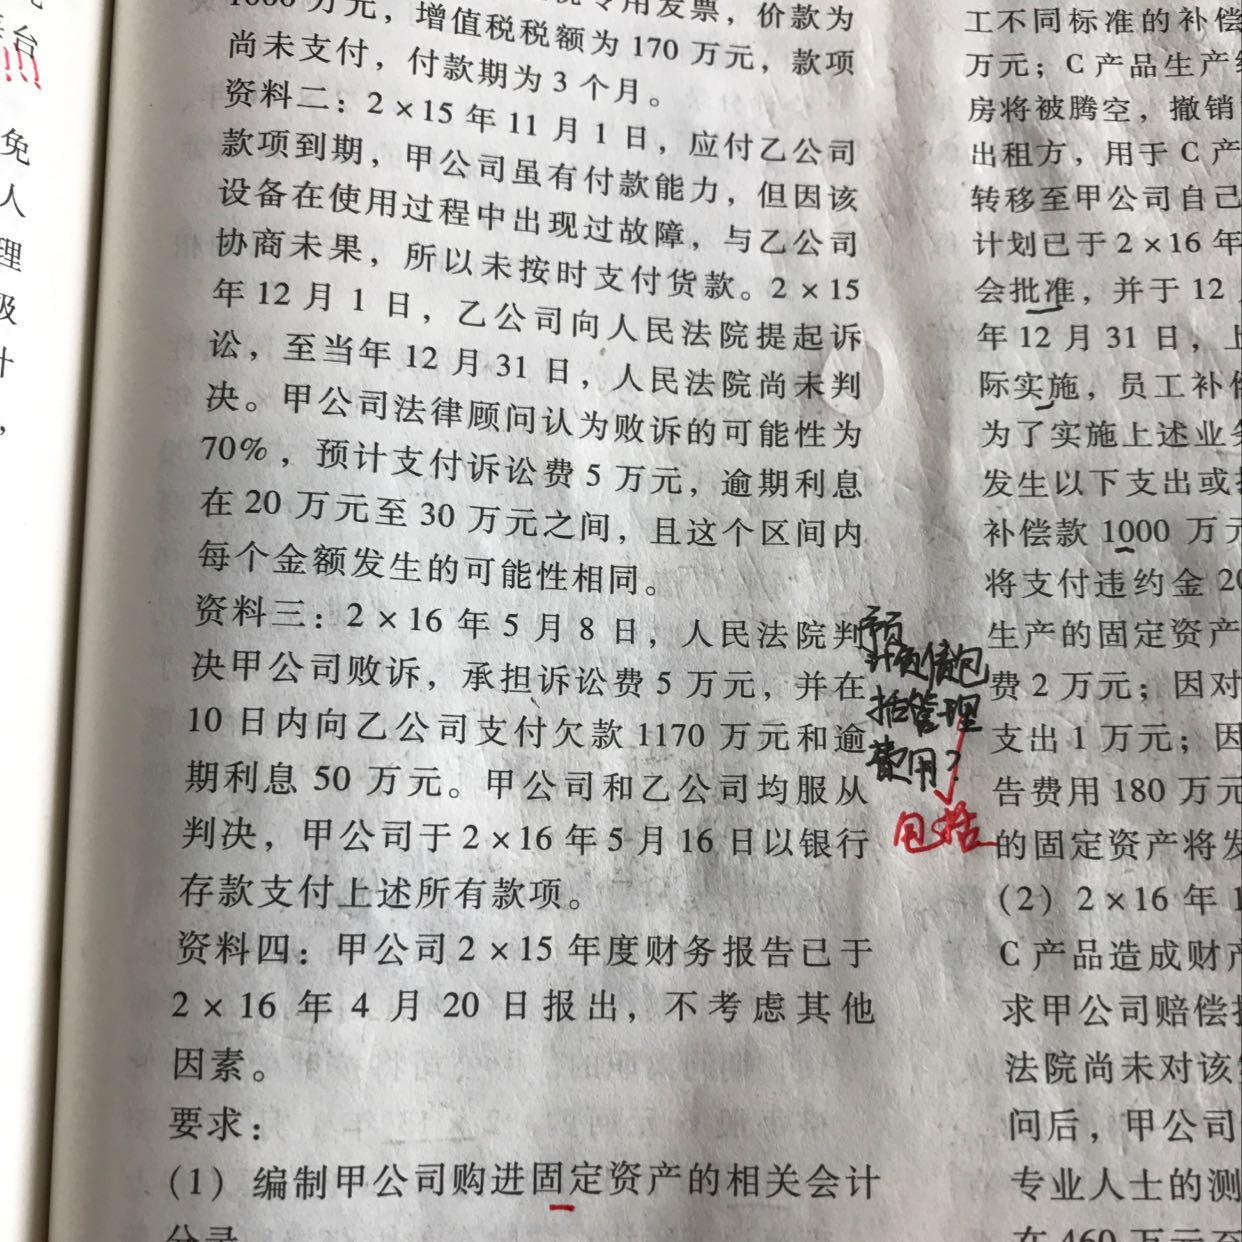 台
!!!
免
人
理
级
计
，
1000 万元，增值税税额为 170 万元，款项
专用发票，价款为
尚未支付，付款期为 3 个月。
资料二：2×15 年 11 月 1 日，应付乙公司
款项到期，甲公司虽有付款能力，但因该
设备在使用过程中出现过故障，与乙公司
协商未果，所以未按时支付货款。2×15
年 12 月 1 日，乙公司向人民法院提起诉
讼，至当年 12 月 31 日，人民法院尚未判
决。甲公司法律顾问认为败诉的可能性为
70%，预计支付诉讼费 5 万元，逾期利息
在 20 万元至 30 万元之间，且这个区间内
每个金额发生的可能性相同。
资料三：2×16 年 5 月 8 日，人民法院判
决甲公司败诉，承担诉讼费 5 万元，并在
10 日内向乙公司支付欠款 1170 万元和逾
期利息 50 万元。甲公司和乙公司均服从
判决，甲公司于 2×16 年 5 月 16 日以银行
存款支付上述所有款项。
资料四：甲公司 2×15 年度财务报告已于
2×16 年 4 月 20 日报出，不考虑其他
因素。
要求：
（1）编制甲公司购进固定资产的相关会计
分录
预
计负债包
括管理
费用？
包括
工不同标准的补偿
万元；C 产品生产
房将被腾空，撤销
出租方，用于 C 产
转移至甲公司自己
计划已于 2×16 年
会批准，并于 12
年 12 月 31 日，上
际实施，员工补偿
为了实施上述业务
发生以下支出或
补偿款 1000 万元
将支付违约金 20
生产的固定资产
费 2 万元；因对
支出 1 万元；因
告费用 180 万元
的固定资产将发
（2）2×16 年 1
C 产品造成财产
求甲公司赔偿
法院尚未对该
问后，甲公司
专业人士的测
在 460 万元至